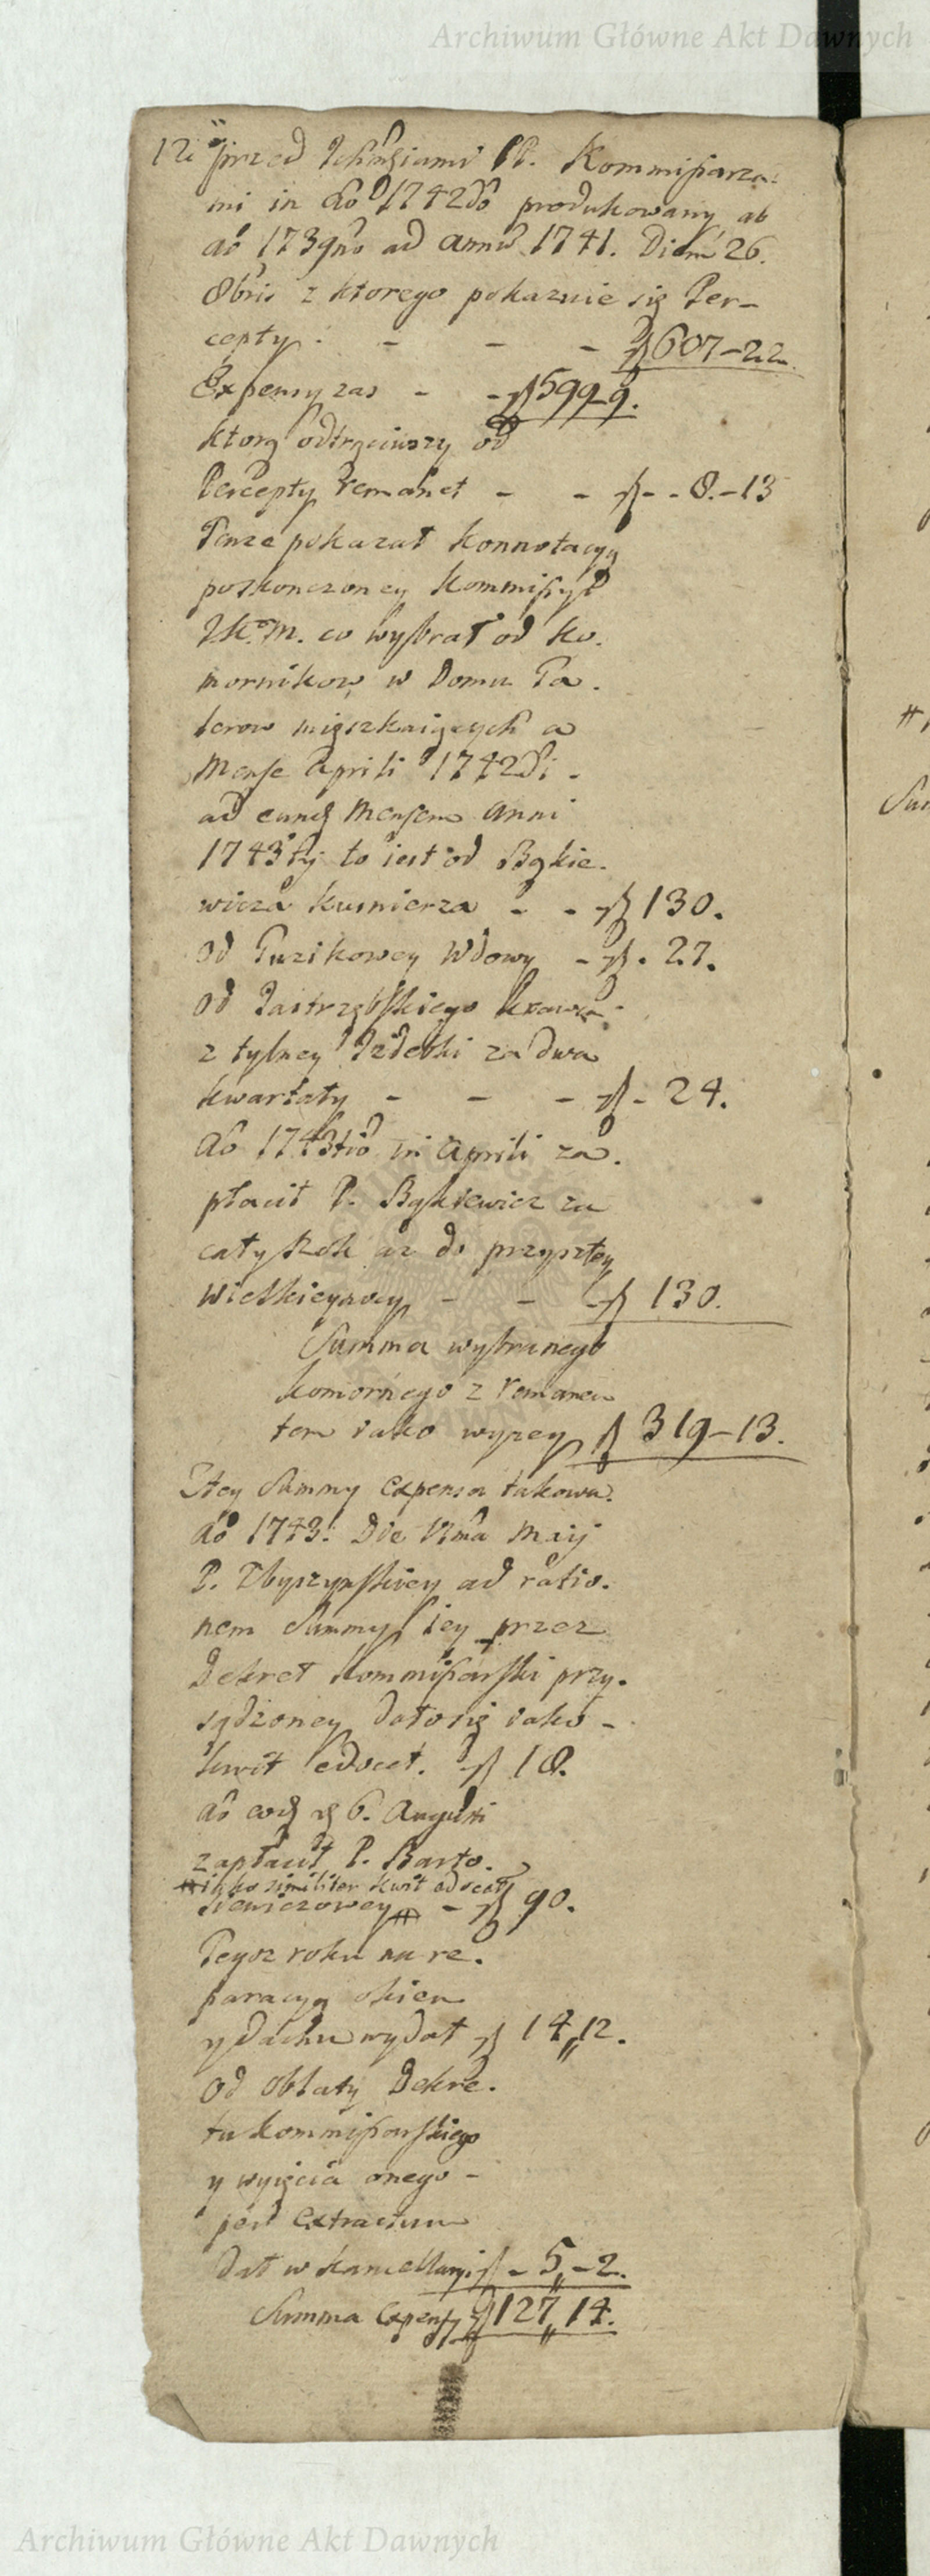 Archiwum Główne Akt Dawnych
12 przed Ichmściami PP. Kommissarza-
mi in Ao 1742do produkowany ab
Ao 1739no ad annū 1741. Diem 26.
8bris z ktorego pokazuie się Per-
cepty. - - - fl 607-22.
Expensy zas - - fl 599-9.
ktorą odtrąciwszy od
Percepty remanet - - fl - - 8.-13
Tenze pokazał konnotacyą
poskonczoney Kommissyi
JK.M. co wybrał od Ko.
mornikow w Domu Pa.
terow mięszkaiących a
Mense Aprili 1742di -
ad eund Mensem Anni
1743tij to iest od Bąkie.
wicza kusnierza - - fl 130.
od Puzikowey Wdowy - fl. 27.
od Jastrzębskiego krawca
z tylney Izdebki za dwa
kwartały - - - fl - 24.
Ao 1743tio in Aprili za.
płacił P. Bąkiewicz za
cały Rok az do przyszłey
Wielkieynocy - - - fl 130.
Summa wybranego
komornego z remanen
tem iako wyzey fl 319-13.
Ztey Summy expensa takowa.
Ao 1743. Die 12ma Maij
P. Zbyszynskiey ad ratio.
nem Summy iey przez
Dekret Kommissarski przy.
sądzoney dało się iako -
kwit edocet. fl 18.
Ao eod 6. Augusti
zapłacił P. Barto.
# iako similiter kwit edocet
siewiczowey # - fl 90.
Tegoz roku na re.
paracyą okien
y dachu wydał fl 14,,12.
Od oblaty Dekre.
tu Kommissarskiego
y wyięcia onego -
per Extractum
dał w kancellaryi fl - 5,,-2.
Summa Expensy fl 127,,14.
Archiwum Główne Akt Dawnych